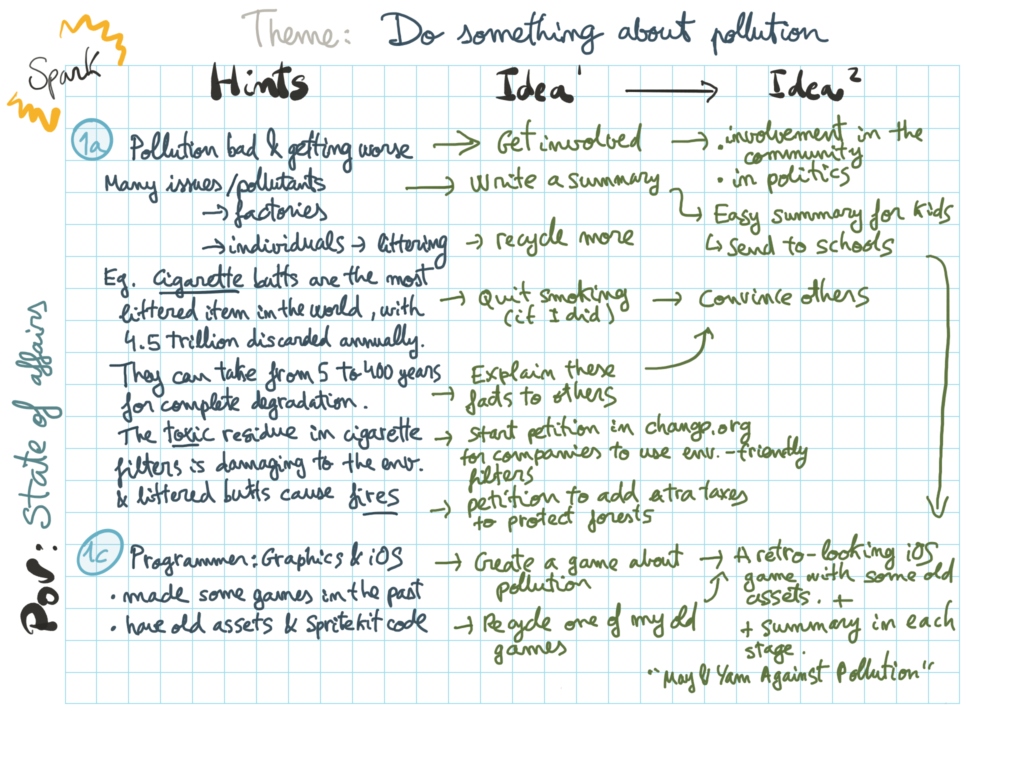 Theme: Do something about pollution
Spark
Hints Idea¹ → Idea²
1a Pollution bad & getting worse → Get involved → . involvement in the
community
• in politics
Many issues/pollutants → Write a summary
→ factories
Easy summary for kids
↳ Send to schools
→ individuals → littering → recycle more
Eg. Cigarette butts are the most
littered item in the world, with
4.5 trillion discarded annually.
→ Quit smoking → Convince others
(if I did)
They can take from 5 to 400 years
for complete degradation.
→ Explain these
facts to others
The toxic residue in cigarette
filters is damaging to the env.
& littered butts cause fires
→ Start petition in change.org
for companies to use env.-friendly
filters
→ petition to add xtra taxes
to protect forests
POV: State of affairs
1c Programmer: Graphics & iOS → Create a game about → A retro-looking iOS
pollution
game with some old
assets. +
• made some games in the past
• have old assets & Spritekit code → Recycle one of my old
games
+ Summary in each
stage.
"May & Yam Against Pollution"